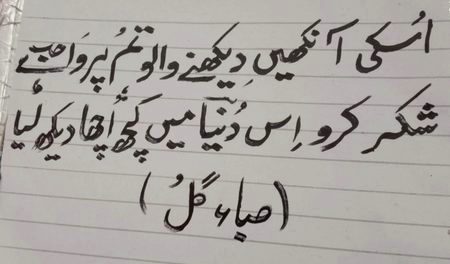 اُسکی آنکھیں دیکھنے والو تمُ پر واجب ہے
شکر کرو اِس دُنیا میں کچھ اچھا دیکھ لیا
(صباء گلُ)